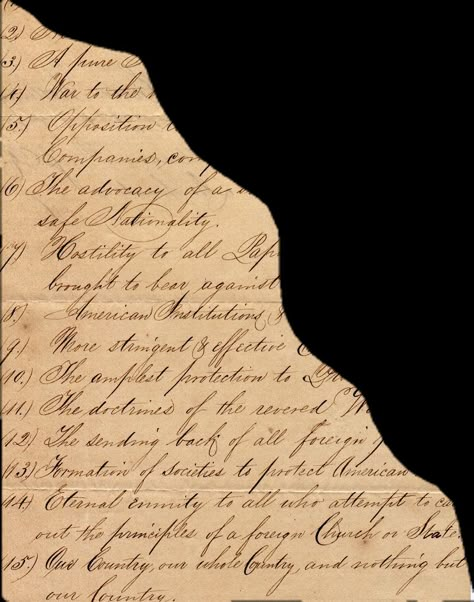 (2)
(3) A pure
(4) War to the
(5.) Opposition
Companies, com
(6) The advocacy of a
safe Nationality.
(7) Hostility to all Pap
brought to bear against
(8.) American Institutions &
(9.) More stringent & effective
(10.) The amplest protection to
(11.) The doctrines of the revered
(12.) The sending back of all foreign
(13.) Formation of societies to protect American
(14) Eternal enmity to all who attempt to ca
out the principles of a foreign Church or State.
(15.) Our Country, our whole Country, and nothing but
our Country.